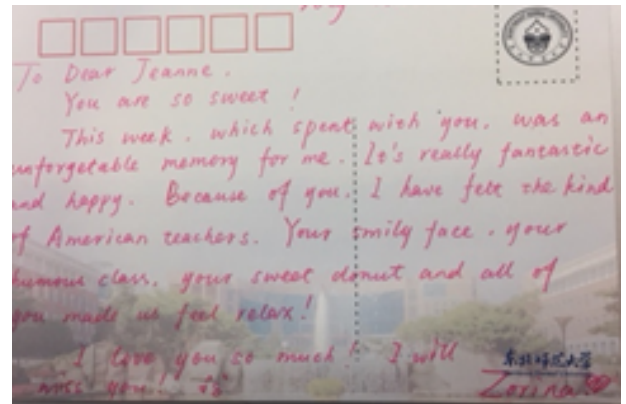 To Dear Jeanne.
You are so sweet !
This week . which spent with you. was an
unforgetable memory for me. It's really fantastic
and happy. Because of you. I have felt the kind
of American teachers. Your smily face . your
humous class, your sweet donut and all of
you made us feel relax!
I love you so much! I will
miss you!
东北师范大学
Zorina